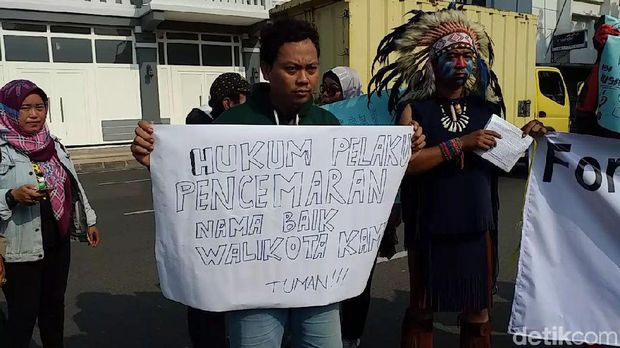 HUKUM PELAKU
PENCEMARAN
NAMA BAIK
WALIKOTA KAMI
TUMAN!!!
For
detikcom